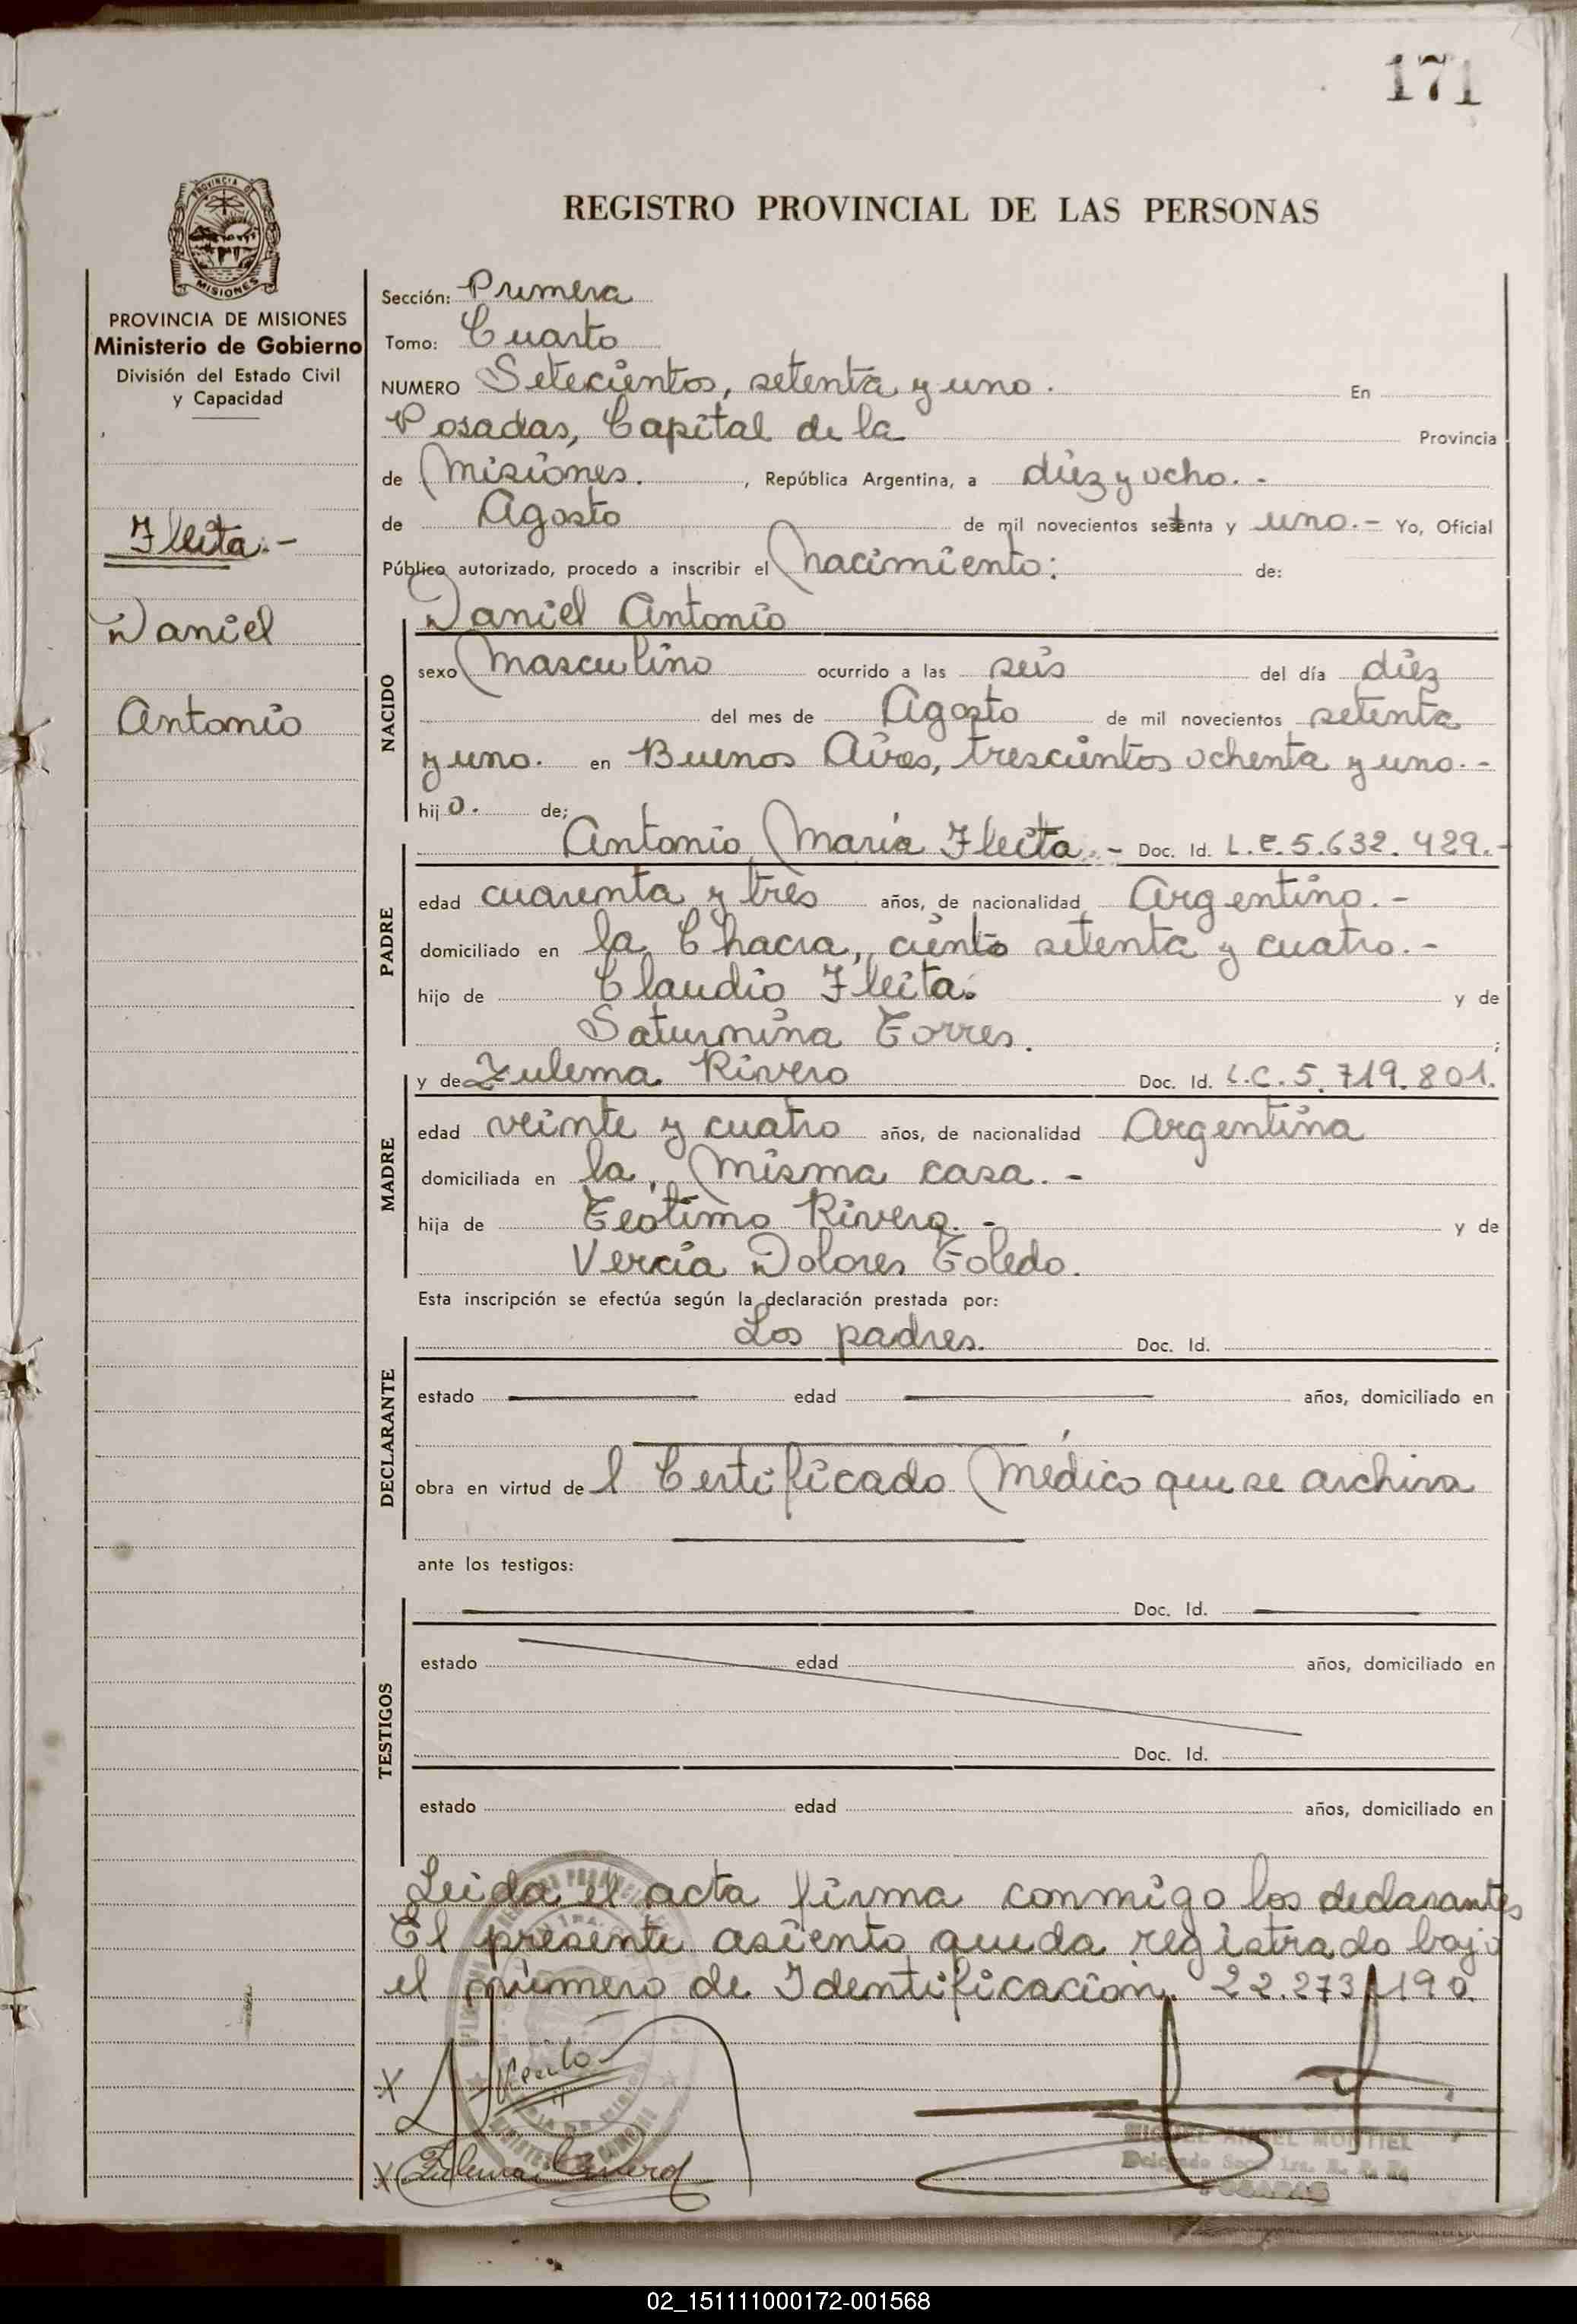 171
PROVINCIA DE
MISIONES
REGISTRO PROVINCIAL DE LAS PERSONAS
PROVINCIA DE MISIONES
Ministerio de Gobierno
División del Estado Civil
y Capacidad
Fleita.-
Daniel
Antonio
Sección: Primera
Tomo: Cuarto
NUMERO Setecientos, setenta y uno. En
Posadas, Capital de la Provincia
de Misiones. , República Argentina, a diez y ocho. -
de Agosto de mil novecientos setenta y uno.- Yo, Oficial
Público autorizado, procedo a inscribir el nacimiento: de:
Daniel Antonio
NACIDO
sexo Masculino ocurrido a las seis del día diez
del mes de Agosto de mil novecientos setenta
y uno. en Buenos Aires, trescientos ochenta y uno.-
hijo. de;
Antonio María Fleita.- Doc. Id. L.E.5.632.429.-
PADRE
edad cuarenta y tres años, de nacionalidad Argentino.-
domiciliado en la Chacra, ciento setenta y cuatro.-
hijo de Claudio Fleita. y de
Saturnina Torres. ;
y de Zulema Rivero Doc. Id. L.C.5.719.801.
MADRE
edad veinte y cuatro años, de nacionalidad Argentina
domiciliada en la, misma casa.-
hija de Teótimo Rivero.- y de
Vercia Dolores Toledo.
Esta inscripción se efectúa según la declaración prestada por:
Los padres. Doc. Id.
DECLARANTE
estado edad años, domiciliado en
obra en virtud del Certificado Médico que se archiva
ante los testigos:
Doc. Id.
TESTIGOS
estado edad años, domiciliado en
Doc. Id.
estado edad años, domiciliado en
Leida el acta firma conmigo los declarantes
El presente asiento queda registrado bajo
el número de Identificación. 22.273.190.
X
X Zulema Rivero
MIGUEL ANGEL MONTIEL
Delegado Secc. 1ra. R. P. P.
POSADAS
02_151111000172-001568